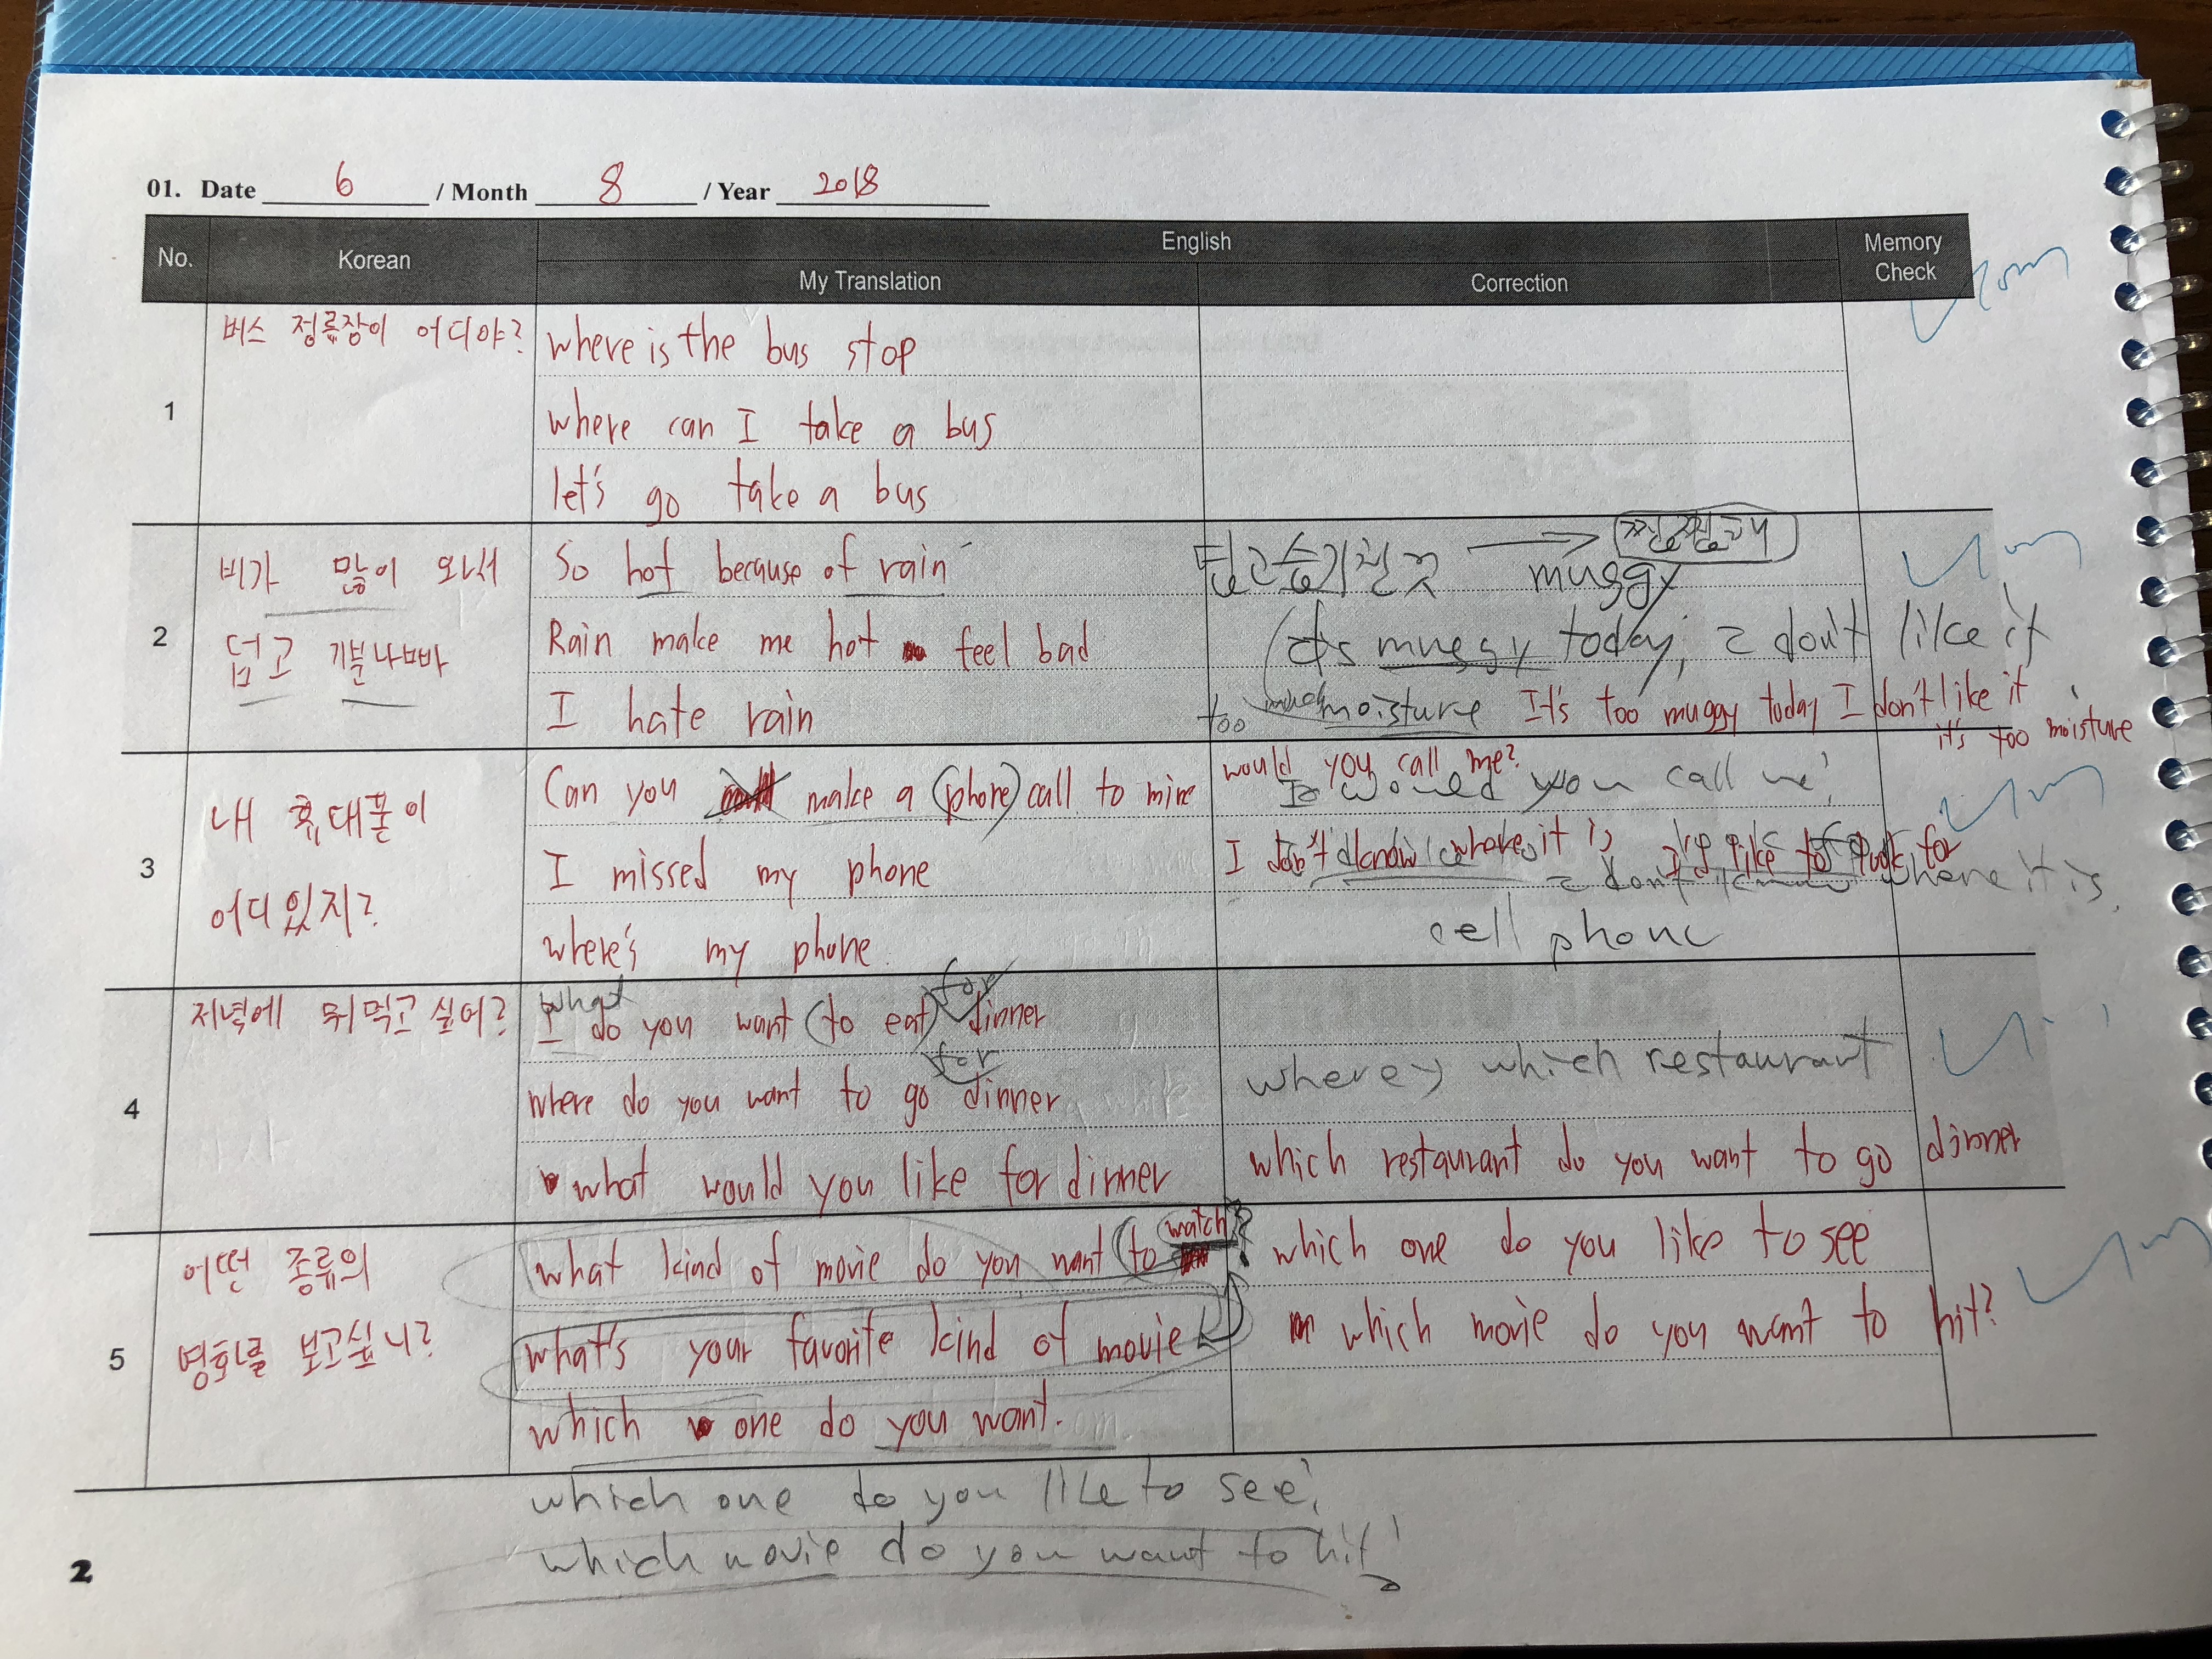 01. Date 6 / Month 8 / Year 2018
No. Korean English Memory Check
My Translation Correction
1
버스 정류장이 어디야?
where is the bus stop
where can I take a bus
let's go take a bus
2
비가 많이 와서
덥고 기분나빠
So hot because of rain
Rain make me hot feel bad
I hate rain
덥고 습기찬 것 →
muggy
It's muggy today, I don't like it
too much moisture It's too muggy today I don't like it
it's too moisture
3
내 휴대폰이
어디 있지?
Can you make a (phone) call to mine
I missed my phone
where's my phone
would you call me?
would you call me?
I don't know where it is
I don't know where it is.
cell phone
4
저녁에 뭐먹고 싶어?
what for
I do you want (to eat) dinner
for
where do you want to go dinner
what would you like for dinner
where → which restaurant
which restaurant do you want to go dinner
5
어떤 종류의
영화를 보고싶니?
watch
what kind of movie do you want (to ?
what's your favorite kind of movie
which one do you want.
which one do you like to see
which movie do you want to hit?
which one do you like to see?
which movie do you want to hit?
2